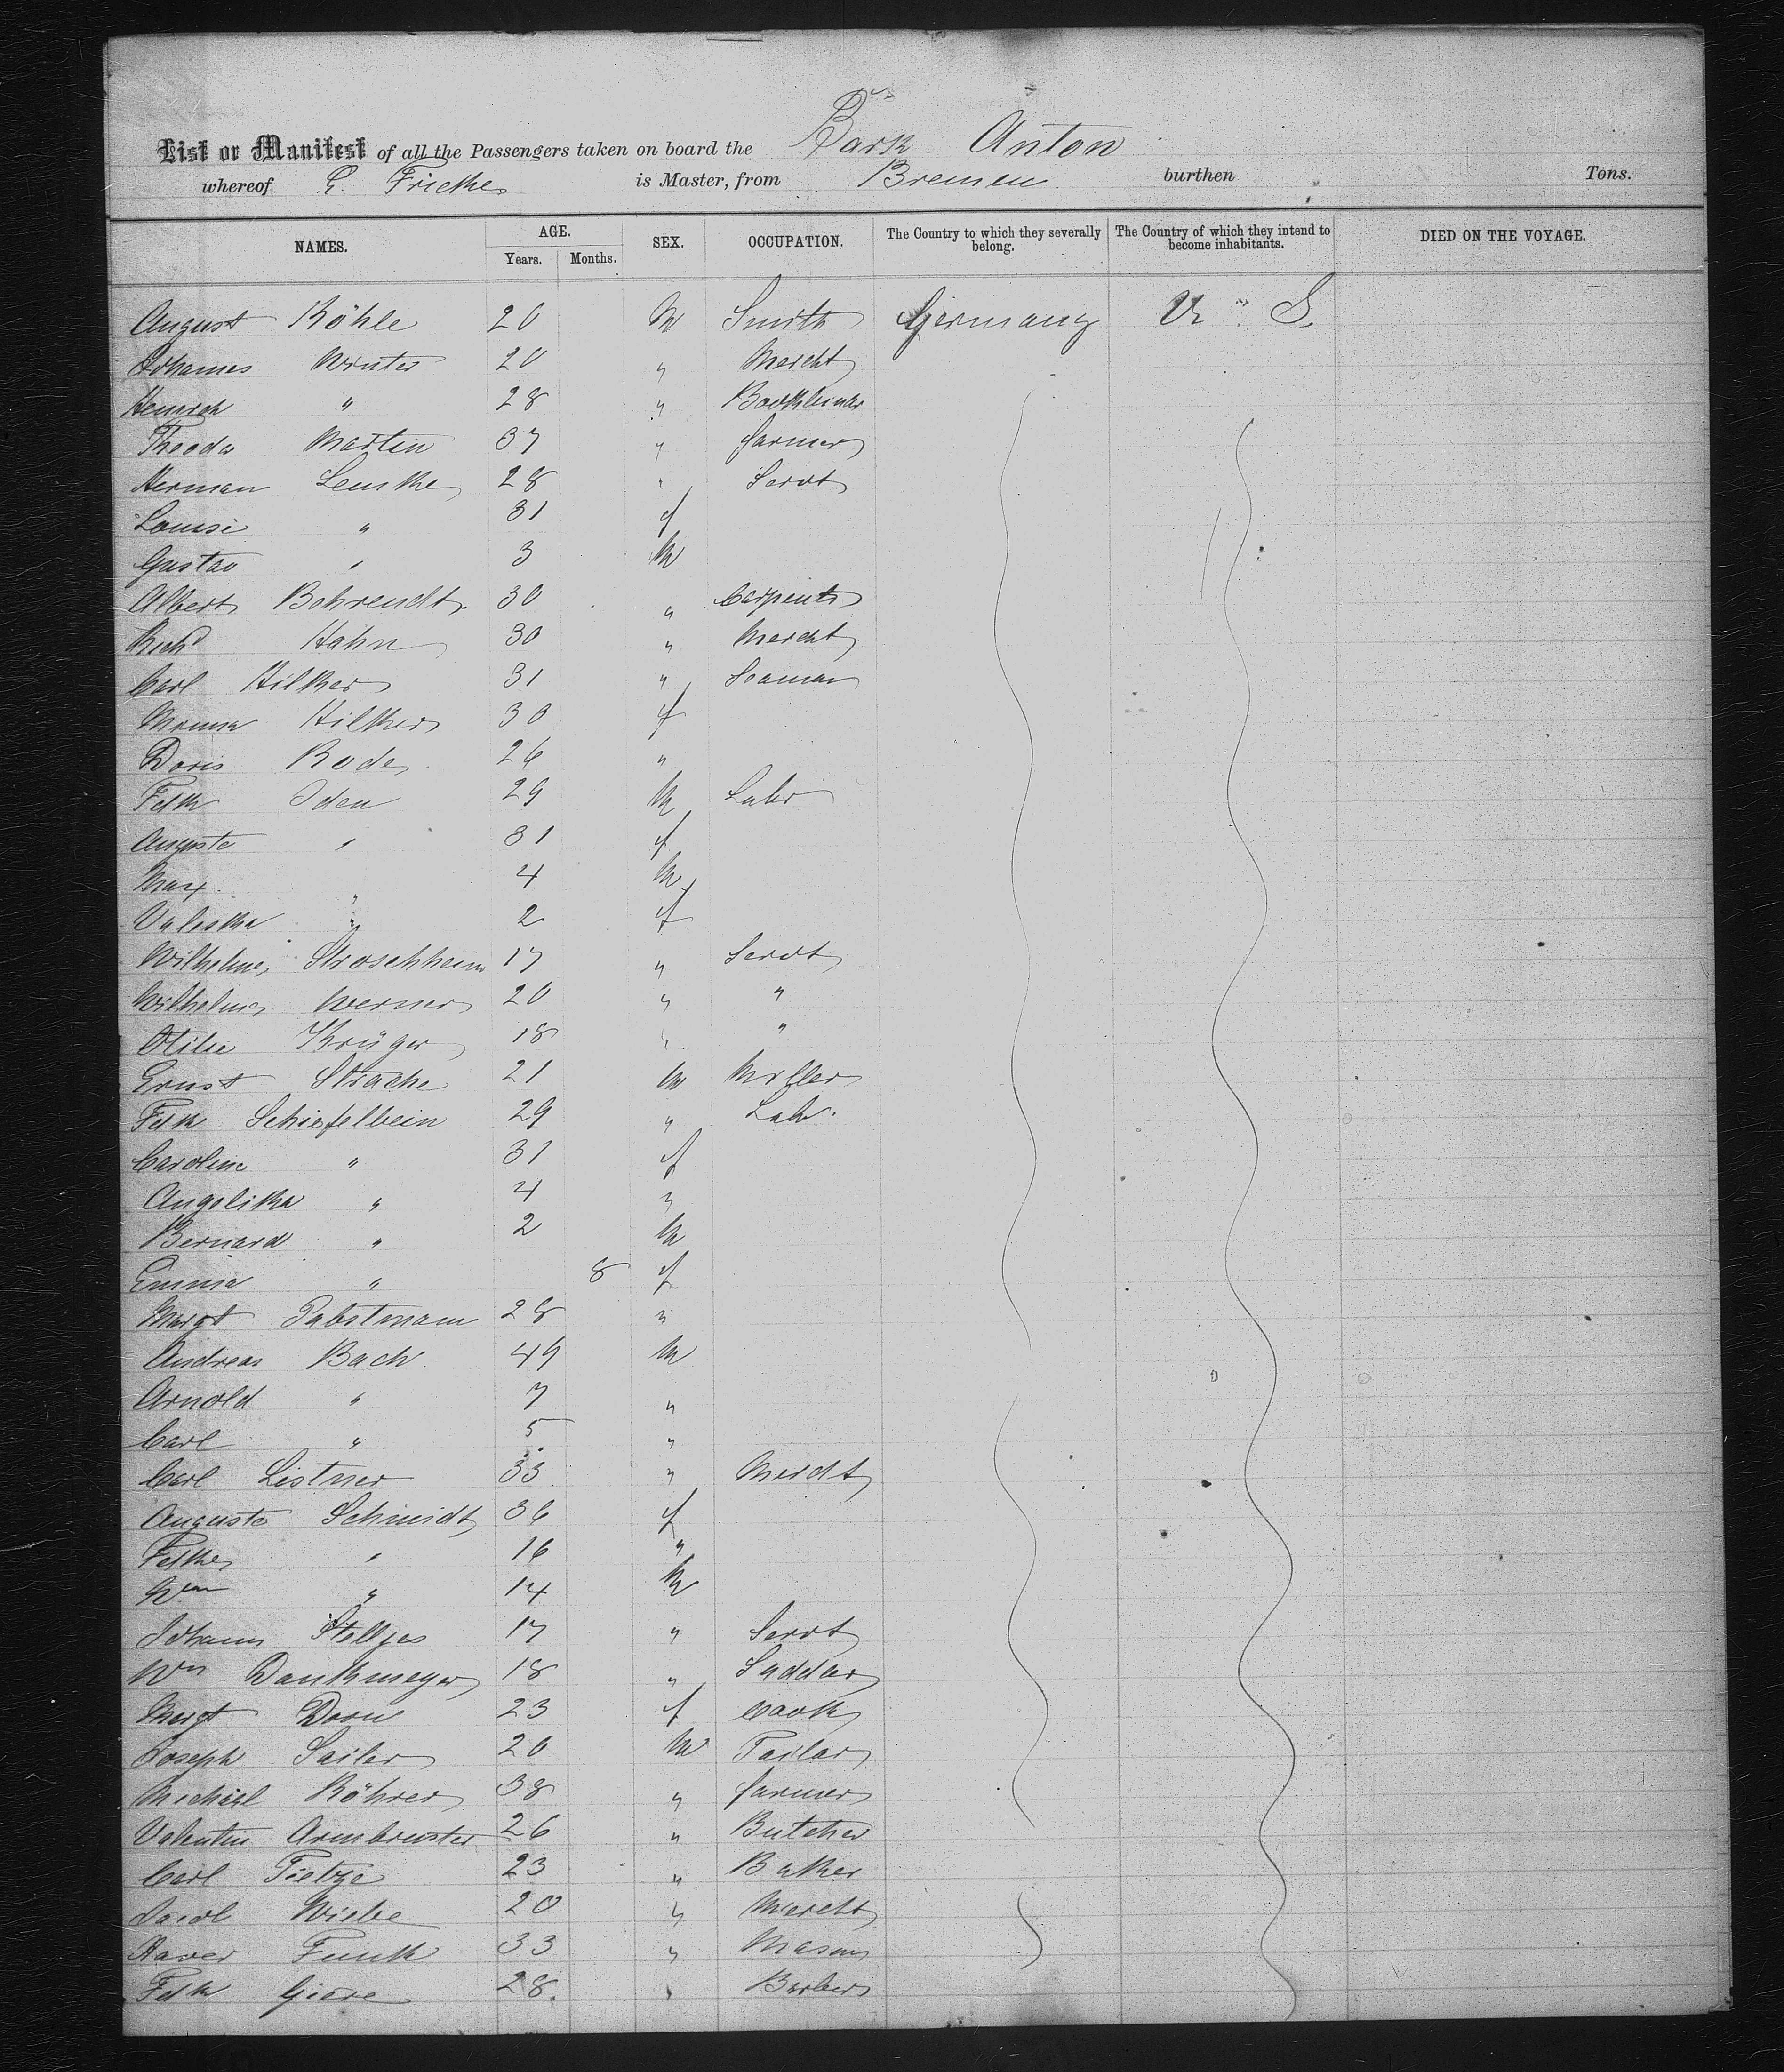 Brs
List or Manifest of all the Passengers taken on board the Bark Anton
whereof G. Fricke is Master, from Bremen burthen Tons.
NAMES. AGE. SEX. OCCUPATION. The Country to which they severally belong. The Country of which they intend to become inhabitants. DIED ON THE VOYAGE.
Years. Months.
August Röhle 20 M Smith Germany U. S.
Johannes Winter 20 " Mercht
Heinrich " 28 " Bookbinder
Theodor Martin 37 " farmer
Herman Lemke 28 " Servt
Louise " 31 f
Gustav " 3 M
Albert Behrendt 30 " Carpenter
Richd Hahn 30 " Mercht
Carl Hilker 31 " Seaman
Hilker 30 f
Doris Rode 26 "
Fdk Iden 29 M Labr
Auguste " 31 f
Max " 4 M
Valeska " 2 f
Wilhelmine Stroschheim 17 " Servt
Wilhelmine Werner 20 " "
Otilie Krüger 18 " "
Ernst Strache 21 M Miller
Fdk Schiefelbein 29 " Labr.
Caroline " 31 f
Angelika " 4 "
Bernard " 2 M
Emma " 8 f
Margt Pabstmann 28 "
Andreas Bach 49 M
Arnold " 7 "
Carl " 5 "
Carl Listner 33 " Mercht
Auguste Schmidt 36 f
Fdke " 16 "
Wm " 14 M
Johann Stelljes 17 " Servt
Wm Dankmeyer 18 " Saddler
Margt Dorn 23 f Cook
Joseph Sailer 20 M Tailor
Michael Röhrer 38 " farmer
Valentin Armbruster 26 " Butcher
Carl Tietze 23 " Baker
Jacob Wiebe 20 " Mercht
Xaver Funk 33 " Mason
Fdk Giere 28. " Barber